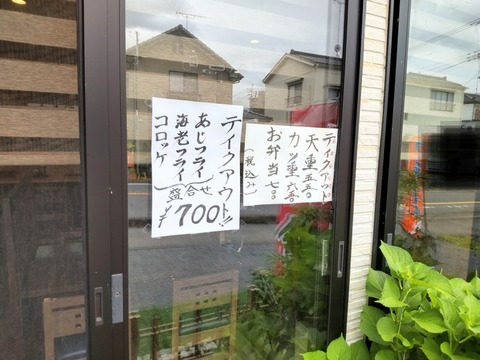 テイクアウト!!
あじフライ
海老フライ
コロッケ
盛合せ
¥700
テイクアウト
天重 五五〇
カツ重 六五〇
お弁当 七〇〇
(税込み)